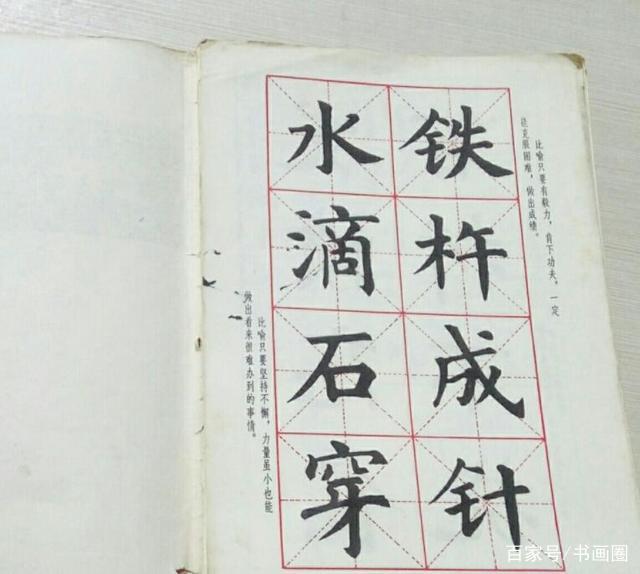 铁杵成针
比喻只要有毅力，肯下功夫，一定
能克服困难，做出成绩。
水滴石穿
比喻只要坚持不懈，力量虽小也能
做出看来很难办到的事情。
百家号/书画圈